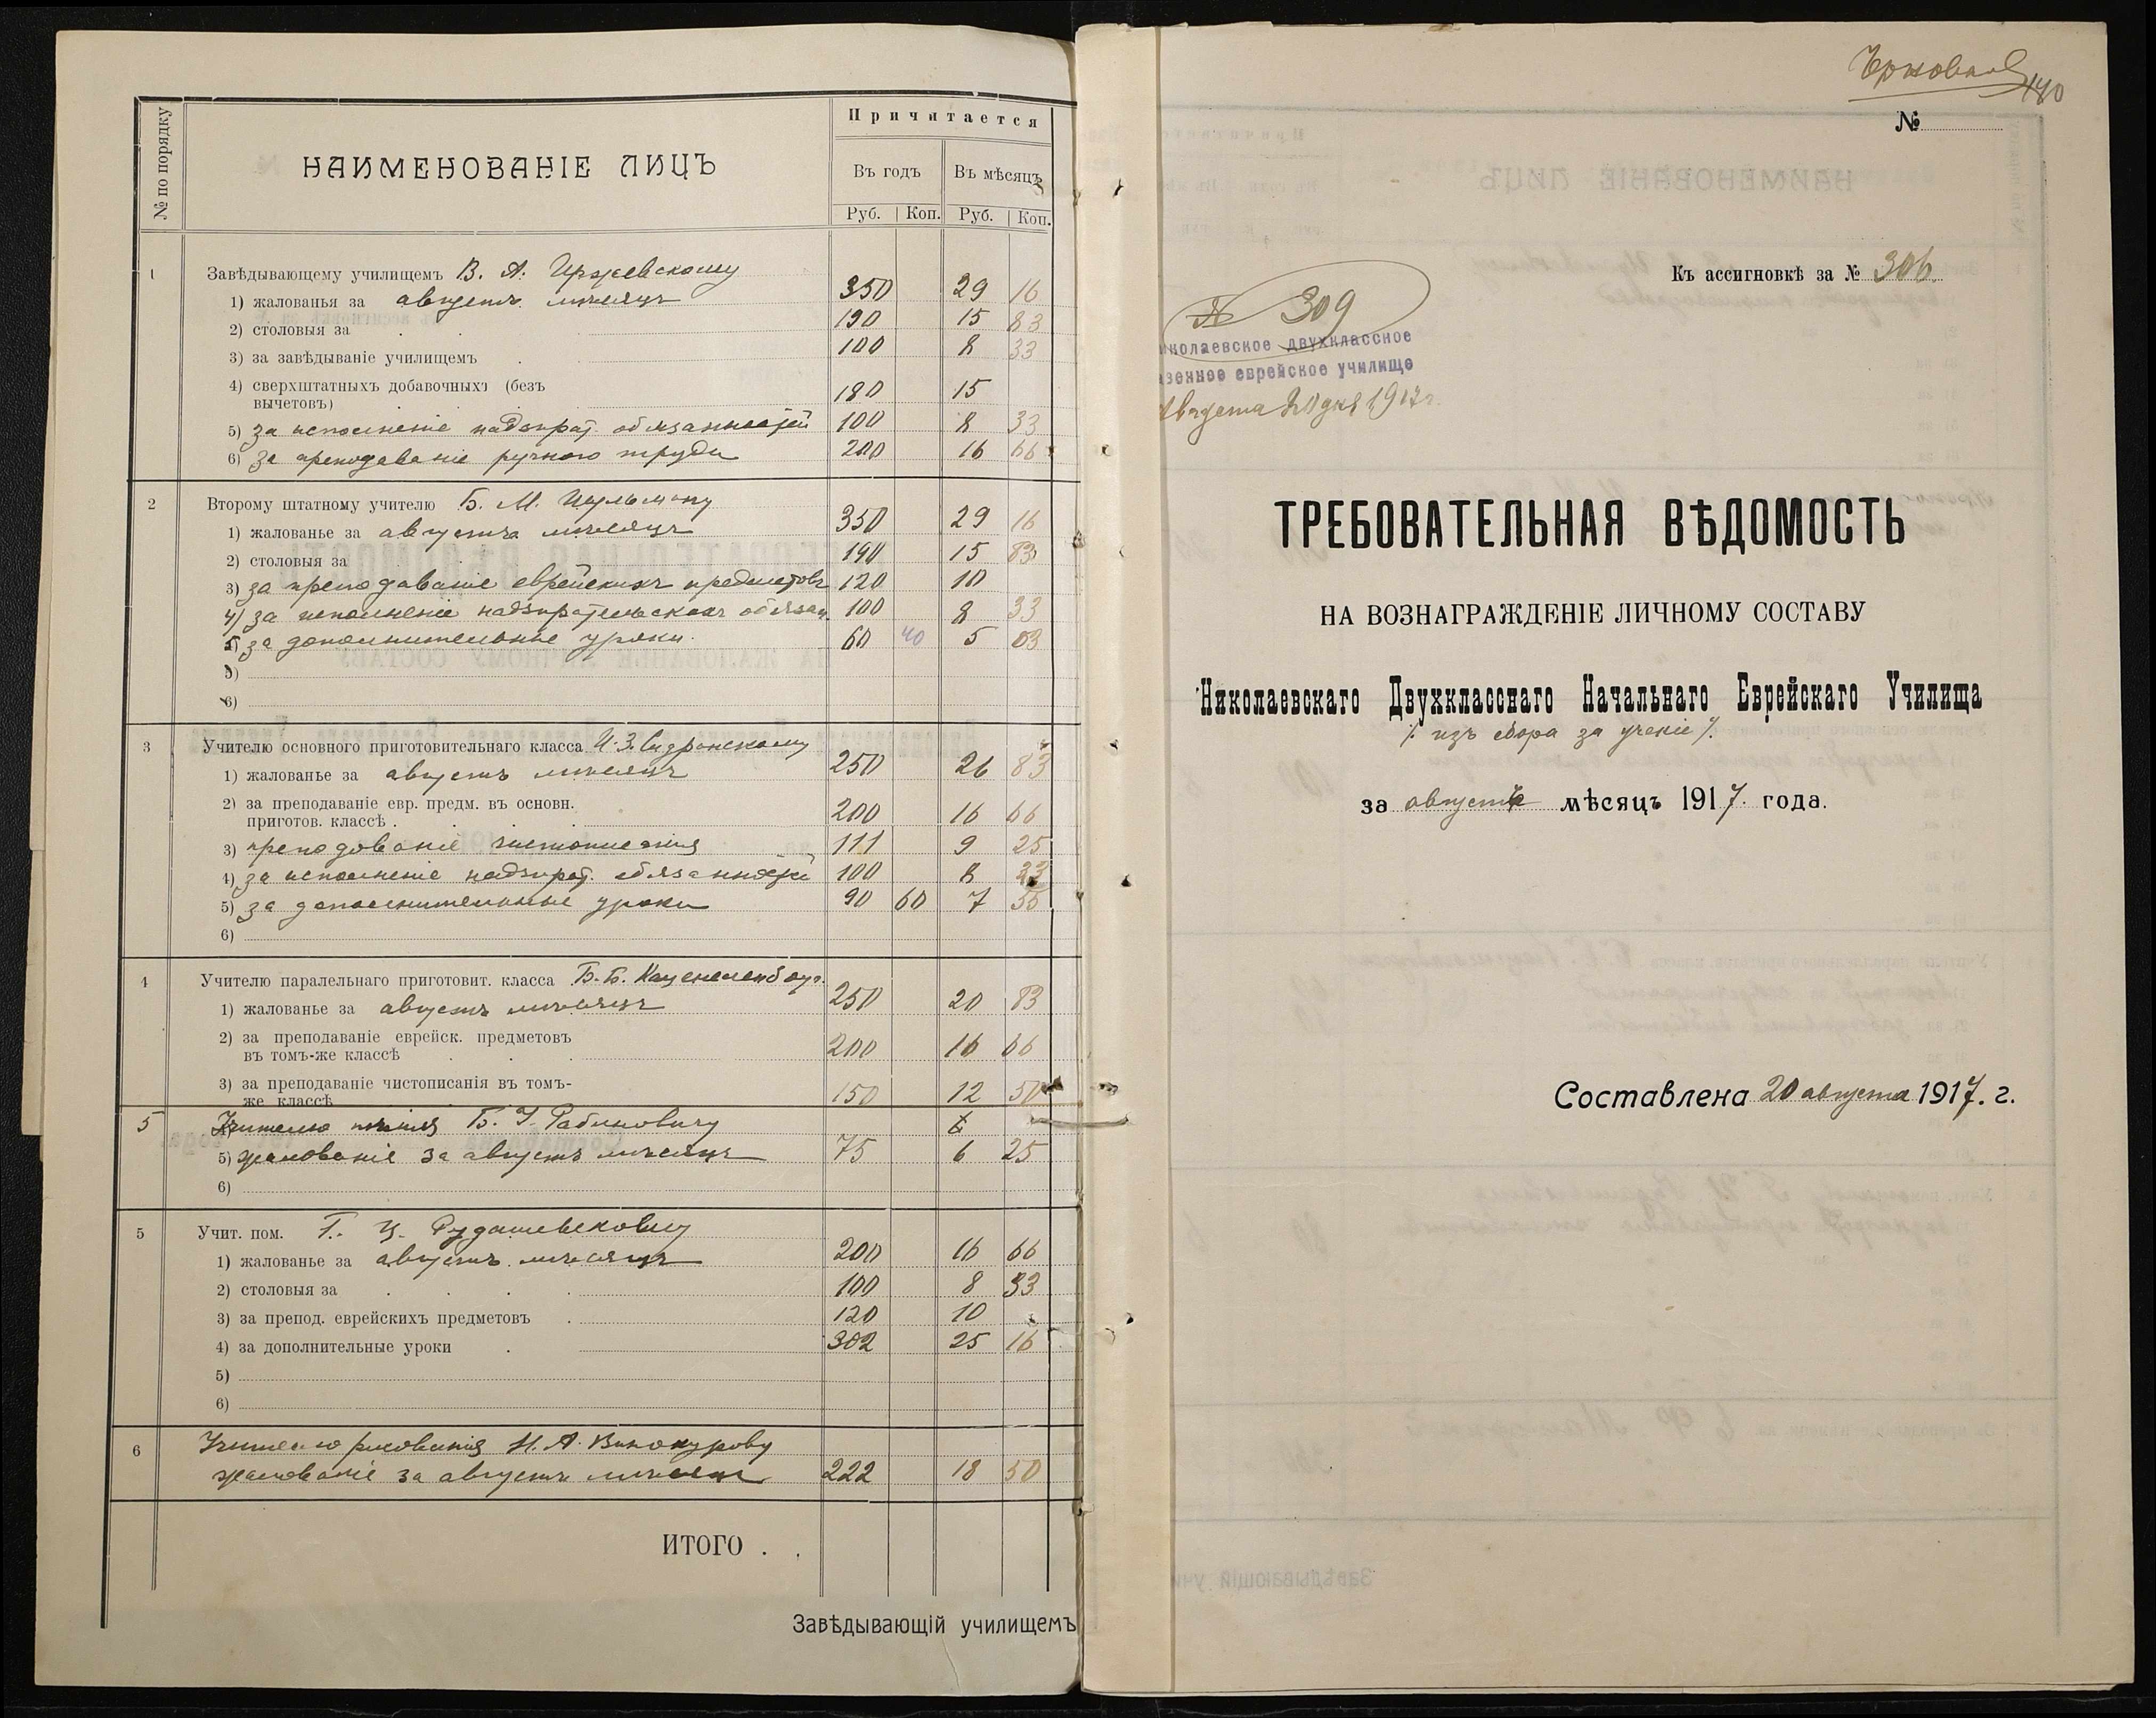 № по порядку
НАИМЕНОВАНІЕ ЛИЦЪ
Причитается
Въ годъ Въ мѣсяцъ
Руб. Коп. Руб. Коп.
1 Завѣдывающему училищемъ В. А.
1) жалованья за августъ мѣсяцъ 350 29 16
2) столовыя за 190 15 83
3) за завѣдываніе училищемъ 100 8 33
4) сверхштатныхъ добавочныхъ (безъ
вычетовъ) 180 15
5) за исполненіе надзират. обязанностей 100 8 33
6) за преподаваніе ручного труда 200 16 66
2 Второму штатному учителю Б. М. Шульману
1) жалованье за августъ мѣсяцъ 350 29 16
2) столовыя за 190 15 83
3) за преподаваніе еврейскихъ предметовъ 120 10
4) за исполненіе надзирательскихъ обязан. 100 8 33
5) за дополнительные уроки. 60 40 5 03
5)
6)
3 Учителю основного приготовительнаго класса И. З.
1) жалованье за августъ мѣсяцъ 250 26 83
2) за преподаваніе евр. предм. въ основн.
приготов. классѣ . 200 16 66
3) преподованіе чистописанія 111 9 25
4) за исполненіе надзират. обязанностей 100 8 33
5) за дополнительные уроки 90 60 7 55
6)
4 Учителю паралельнаго приготовит. класса Б. Б. Каценеленбоуг.
1) жалованье за августъ мѣсяцъ 250 20 83
2) за преподаваніе еврейск. предметовъ
въ томъ-же классѣ 200 16 66
3) за преподаваніе чистописанія въ томъ-
же классѣ 150 12 50
5 Учителю пѣнія Б. І. Рабиновичу 6
5) жалованіе за августъ мѣсяцъ 75 6 25
6)
5 Учит. пом. Г. Ц. Рудашевскому
1) жалованье за августъ мѣсяцъ 200 16 66
2) столовыя за 100 8 33
3) за препод. еврейскихъ предметовъ 120 10
4) за дополнительные уроки 302 25 16
5)
6)
6 Учителю рисованія Н. А. Винокурову
жалованіе за августъ мѣсяцъ 222 18 50
ИТОГО . .
Завѣдывающій училищемъ
440
№
Къ ассигновкѣ за № 306
№ 309
иколаевское двухклассное
азенное еврейское училище
Августа 20 дня 1917 г.
ТРЕБОВАТЕЛЬНАЯ ВѢДОМОСТЬ
НА ВОЗНАГРАЖДЕНІЕ ЛИЧНОМУ СОСТАВУ
Николаевскаго Двухкласснаго Начальнаго Еврейскаго Училища
/: изъ сбора за ученіе :/
за августъ мѣсяцъ 1917. года.
Составлена 20 августа 1917. г.